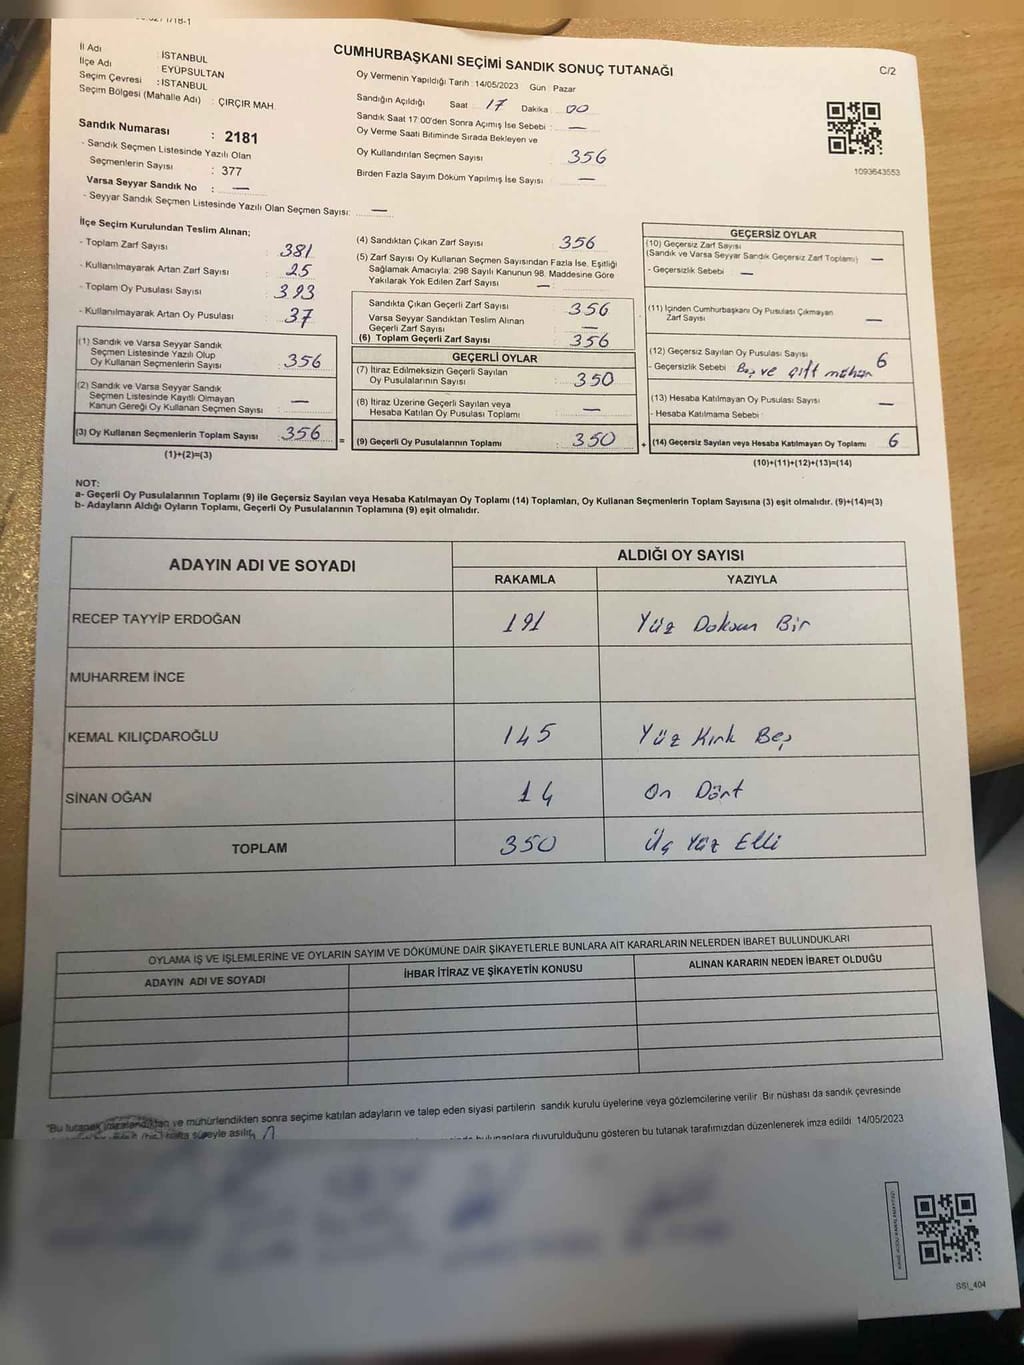 CUMHURBAŞKANI SEÇİMİ SANDIK SONUÇ TUTANAĞI
C/2
İl Adı : İSTANBUL
İlçe Adı : EYÜPSULTAN
Seçim Çevresi : İSTANBUL
Seçim Bölgesi (Mahalle Adı) : ÇIRÇIR MAH.
Sandık Numarası : 2181
- Sandık Seçmen Listesinde Yazılı Olan
Seçmenlerin Sayısı : 377
Varsa Seyyar Sandık No : —
- Seyyar Sandık Seçmen Listesinde Yazılı Olan Seçmen Sayısı: —
Oy Vermenin Yapıldığı Tarih : 14/05/2023 Gün : Pazar
Sandığın Açıldığı Saat 17 Dakika 00
Sandık Saat 17:00'den Sonra Açımış İse Sebebi : —
Oy Verme Saati Bitiminde Sırada Bekleyen ve
Oy Kullandırılan Seçmen Sayısı 356
Birden Fazla Sayım Döküm Yapılmış İse Sayısı —
1093643553
İlçe Seçim Kurulundan Teslim Alınan;
- Toplam Zarf Sayısı 381
- Kullanılmayarak Artan Zarf Sayısı 25
- Toplam Oy Pusulası Sayısı 393
- Kullanılmayarak Artan Oy Pusulası 37
(1) Sandık ve Varsa Seyyar Sandık
Seçmen Listesinde Yazılı Olup
Oy Kullanan Seçmenlerin Sayısı : 356
(2) Sandık ve Varsa Seyyar Sandık
Seçmen Listesinde Kayıtlı Olmayan
Kanun Gereği Oy Kullanan Seçmen Sayısı —
(3) Oy Kullanan Seçmenlerin Toplam Sayısı : 356
(1)+(2)=(3)
=
(4) Sandıktan Çıkan Zarf Sayısı 356
(5) Zarf Sayısı Oy Kullanan Seçmen Sayısından Fazla İse, Eşitliği
Sağlamak Amacıyla, 298 Sayılı Kanunun 98. Maddesine Göre
Yakılarak Yok Edilen Zarf Sayısı —
Sandıkta Çıkan Geçerli Zarf Sayısı 356
Varsa Seyyar Sandıktan Teslim Alınan
Geçerli Zarf Sayısı —
(6) Toplam Geçerli Zarf Sayısı : 356
GEÇERLİ OYLAR
(7) İtiraz Edilmeksizin Geçerli Sayılan
Oy Pusulalarının Sayısı : 350
(8) İtiraz Üzerine Geçerli Sayılan veya
Hesaba Katılan Oy Pusulası Toplamı : —
(9) Geçerli Oy Pusulalarının Toplamı : 350
+
GEÇERSİZ OYLAR
(10) Geçersiz Zarf Sayısı
(Sandık ve Varsa Seyyar Sandık Geçersiz Zarf Toplamı) —
- Geçersizlik Sebebi : —
(11) İçinden Cumhurbaşkanı Oy Pusulası Çıkmayan
Zarf Sayısı —
(12) Geçersiz Sayılan Oy Pusulası Sayısı 6
- Geçersizlik Sebebi Boş ve çift mühür
(13) Hesaba Katılmayan Oy Pusulası Sayısı —
- Hesaba Katılmama Sebebi
(14) Geçersiz Sayılan veya Hesaba Katılmayan Oy Toplamı 6
(10)+(11)+(12)+(13)=(14)
NOT:
a- Geçerli Oy Pusulalarının Toplamı (9) ile Geçersiz Sayılan veya Hesaba Katılmayan Oy Toplamı (14) Toplamları, Oy Kullanan Seçmenlerin Toplam Sayısına (3) eşit olmalıdır. (9)+(14)=(3)
b- Adayların Aldığı Oyların Toplamı, Geçerli Oy Pusulalarının Toplamına (9) eşit olmalıdır.
ADAYIN ADI VE SOYADI
ALDIĞI OY SAYISI
RAKAMLA YAZIYLA
RECEP TAYYİP ERDOĞAN 191 Yüz Doksan Bir
MUHARREM İNCE
KEMAL KILIÇDAROĞLU 145 Yüz Kırk Beş
SİNAN OĞAN 14 On Dört
TOPLAM 350 Üç Yüz Elli
OYLAMA İŞ VE İŞLEMLERİNE VE OYLARIN SAYIM VE DÖKÜMÜNE DAİR ŞİKAYETLERLE BUNLARA AİT KARARLARIN NELERDEN İBARET BULUNDUKLARI
ADAYIN ADI VE SOYADI İHBAR İTİRAZ VE ŞİKAYETİN KONUSU ALINAN KARARIN NEDEN İBARET OLDUĞU
"Bu tutanak imzalandıktan ve mühürlendikten sonra seçime katılan adayların ve talep eden siyasi partilerin sandık kurulu üyelerine veya gözlemcilerine verilir. Bir nüshası da sandık çevresinde
hafta süreyle asılır.
bulunanlara duyurulduğunu gösteren bu tutanak tarafımızdan düzenlenerek imza edildi 14/05/2023
SSI_404